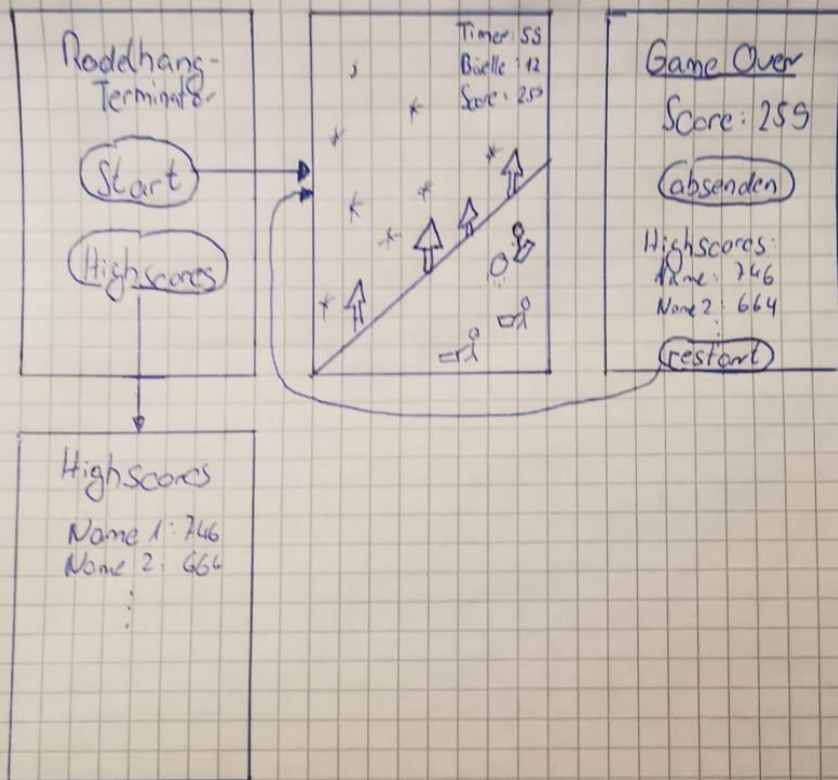 Rodelhang-
Terminator
Start
Highscores
Timer: 55
Bälle: 12
Score: 259
Game Over
Score: 259
absenden
Highscores:
Name: 746
Name 2: 664
restart
Highscores
Name 1: 746
Name 2: 664